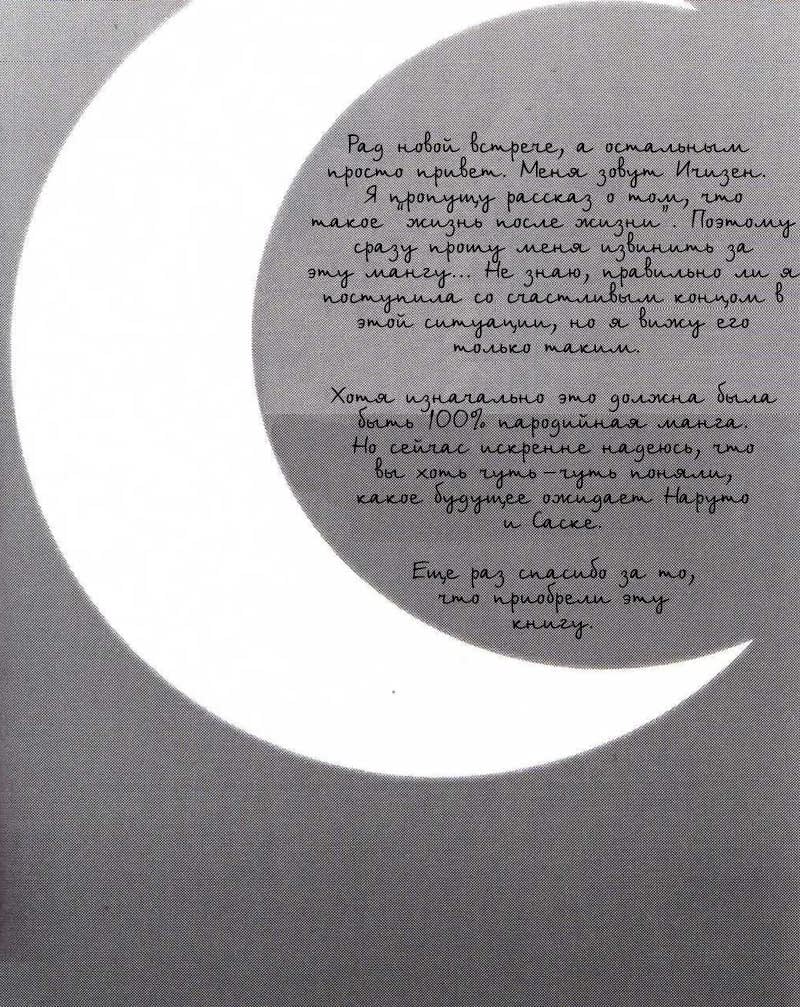 Рад новой встрече, а остальным
просто привет. Меня зовут Ичизен.
Я пропущу рассказ о том, что
такое "жизнь после жизни". Поэтому
сразу прошу меня извинить за
эту мангу... Не знаю, правильно ли я
поступила со счастливым концом в
этой ситуации, но я вижу его
только таким.
Хотя изначально это должна была
быть 100% пародийная манга.
Но сейчас искренне надеюсь, что
вы хоть чуть-чуть поняли,
какое будущее ожидает Наруто
и Саске.
Еще раз спасибо за то,
что приобрели эту
книгу.